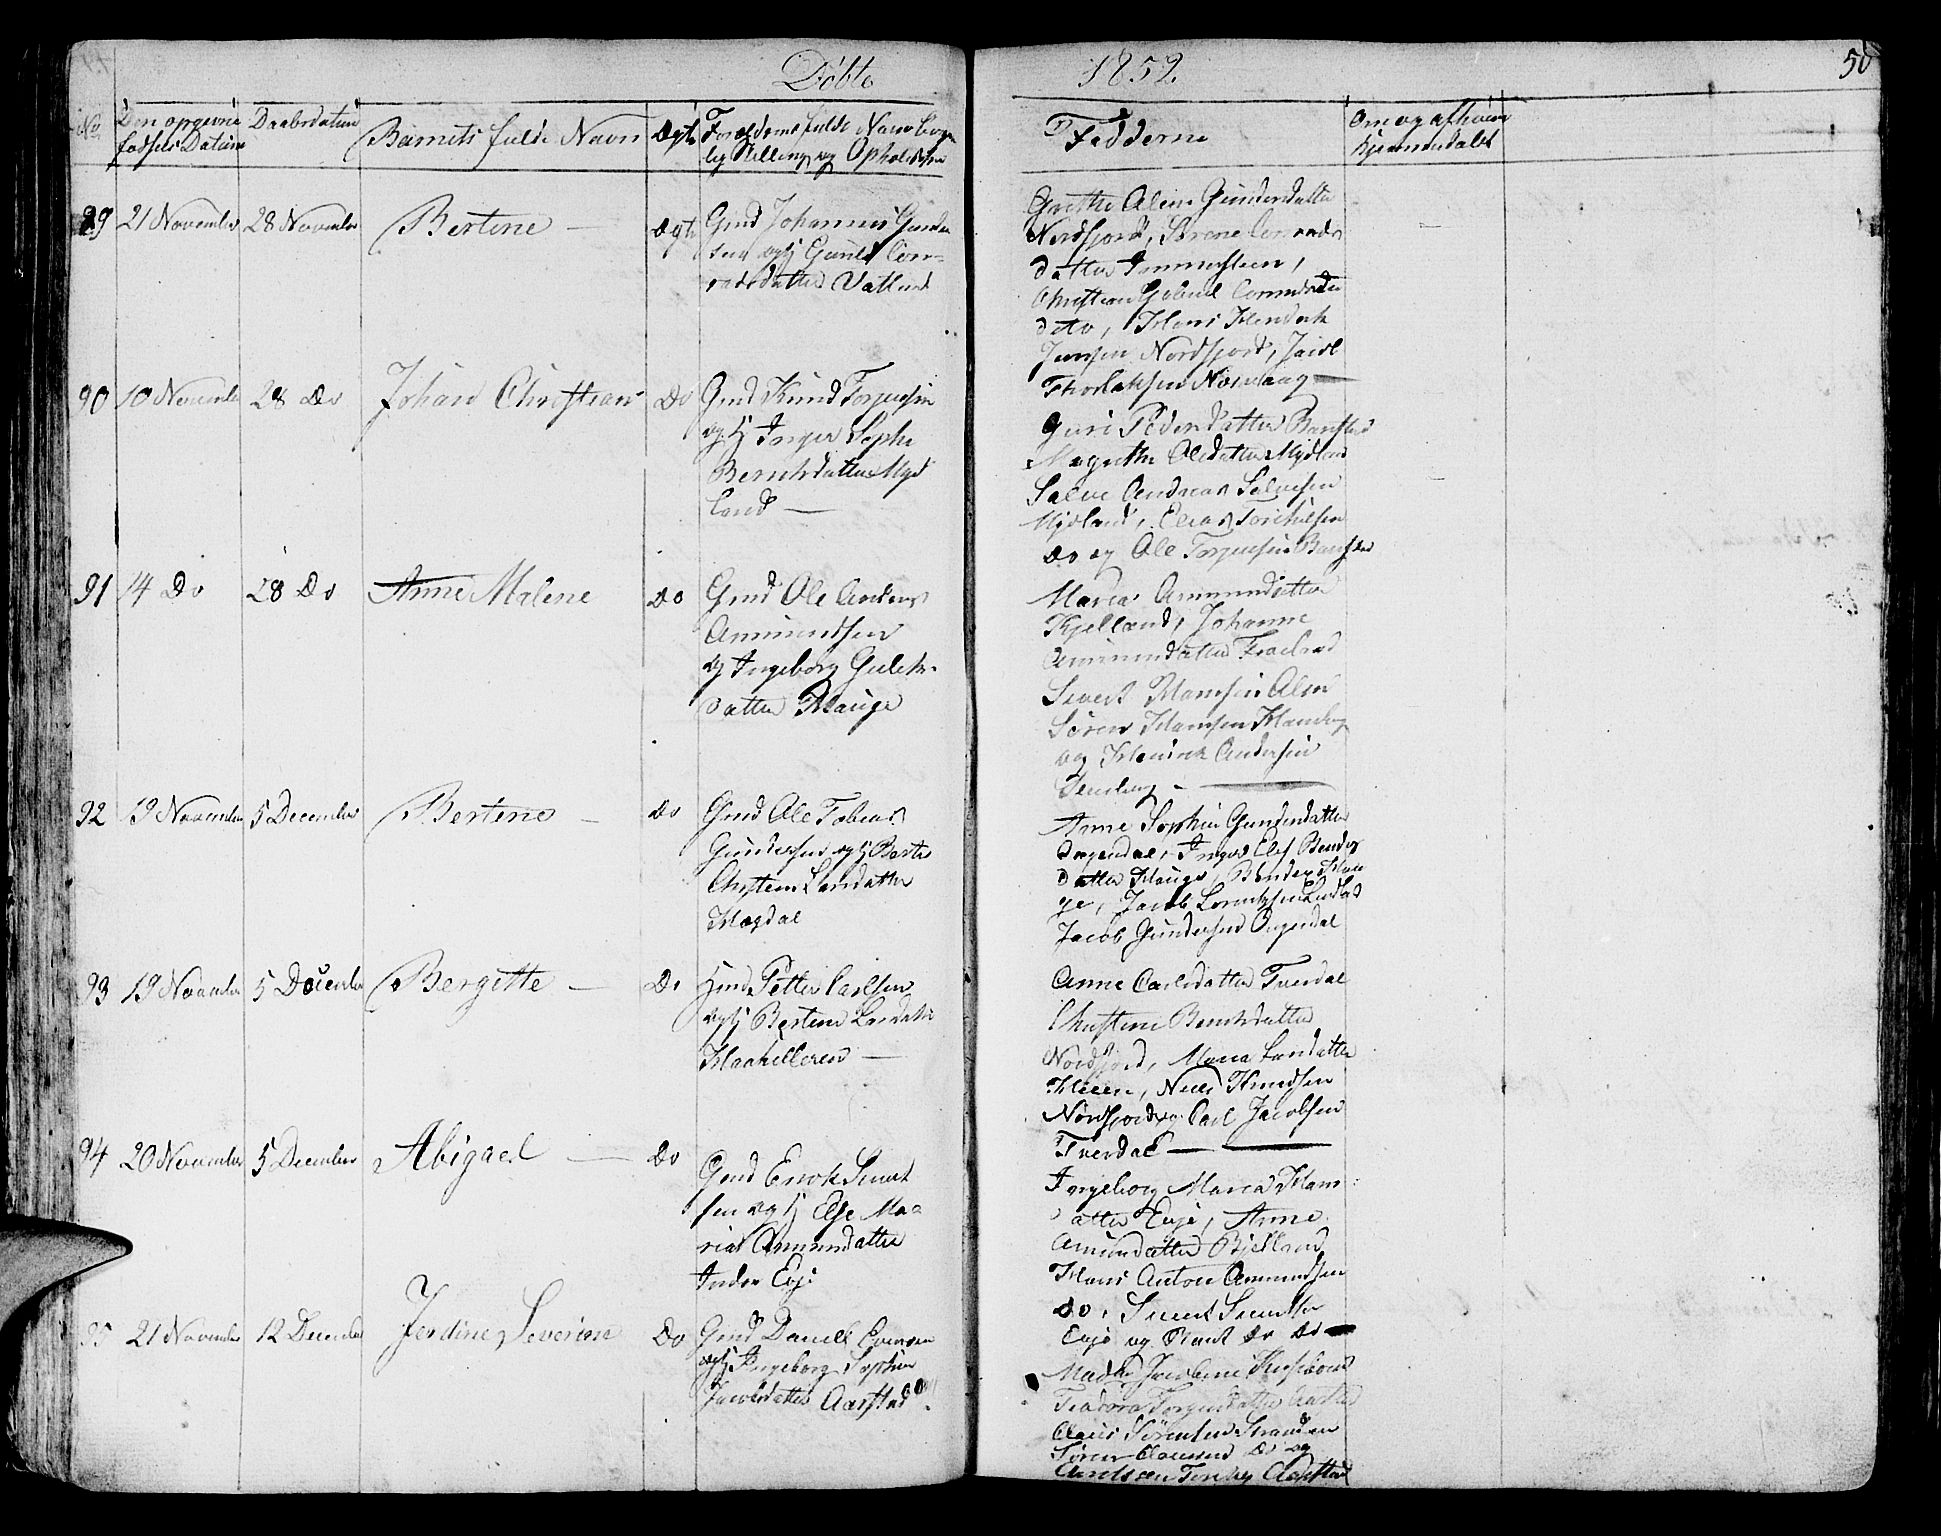 Döbte 1852. 50
No
Den opgevne fødsels Datum
Daabsdatum
Barnets fulde Navn
Ægte
Forældrenes fulde Navn borger
lig Stilling og Opholdsted
Fadderne
Om og af hvem
hjemmedøbt
89 21 November 28 November Bertine — Ægte
Gmd Johannes Gunder
sen og H Gunild Con-
radsdatter Vatland
Grethe Aline Gundersdatter
Nordfjord, Serene Conrads
datter Immersteen,
Christian Gabriel Conradsen
dito, Hans Hendrik
Jensen Nordfjord, Jacob
Thorlaksen Nordaag —
90 10 November 28 Do Johan Christian Do
Gmd Knud Torjussen
og H Inger Sophi
Berntsdatter Myd
land —
Guri Pedersdatter Barstad
Magrethe Olesdatter Mydland
Salve Andreas Salvesen
Mydland, Elias Torkildsen
Do og Ole Torjussen Barstad
91 14 Do 28 Do Anne Malene Do
Gmd Ole Andreas
Ammundsen
og Ingeborg Guleks-
datter Hauge
Maria Ammundsdatter
Kjelland, Johanne
Ammundsdatter Frœland
Sivert Hansen
Søren Hansen
og Hendrik Andersen
92 19 November 5 December Bertine — Do
Gmd Ole Tobias
Gundersen og H Berte
Christine Larsdatter
Høgdal
Anne Sophie Gundersdatter
Ougendal, Inger Elis Bender
datter Hauge, Bender Hau
ge, Jacob Lorentzen
Jacob Gundersen Ougendal
93 19 November 5 December Bergitte — Do
Hmd Petter Carlsen
og H Bertine Larsdatter
Haahelleren —
Anne Carlsdatter Tverdal
Christine Berntsdatter
Nordfjord, Maria Larsdatter
Heeen, Niels Knudsen
Nordfjord og Carl Jacobsen
Tverdal —
94 20 November 5 December Abigael — Do
Gmd Enok Sivert
sen og H Else Ma-
ria Ammundsdatter
Indre Eye
Ingeborg Maria Hans
datter Eye, Anne
Amundsdatter Bjelland
Hans Anton Ammundsen
do, Sivert Sivertsen
Eye og Do Do
95 21 November 12 December Jerdine Severine Do
Gmd Daniel Evensen
og H Ingeborg Sophia
Jacobsdatter Aarstad
Madm
Teodora Torgersdatter Aarstad
Claus Sørensen Stranden
Søren Clausen Do og
Aarstad